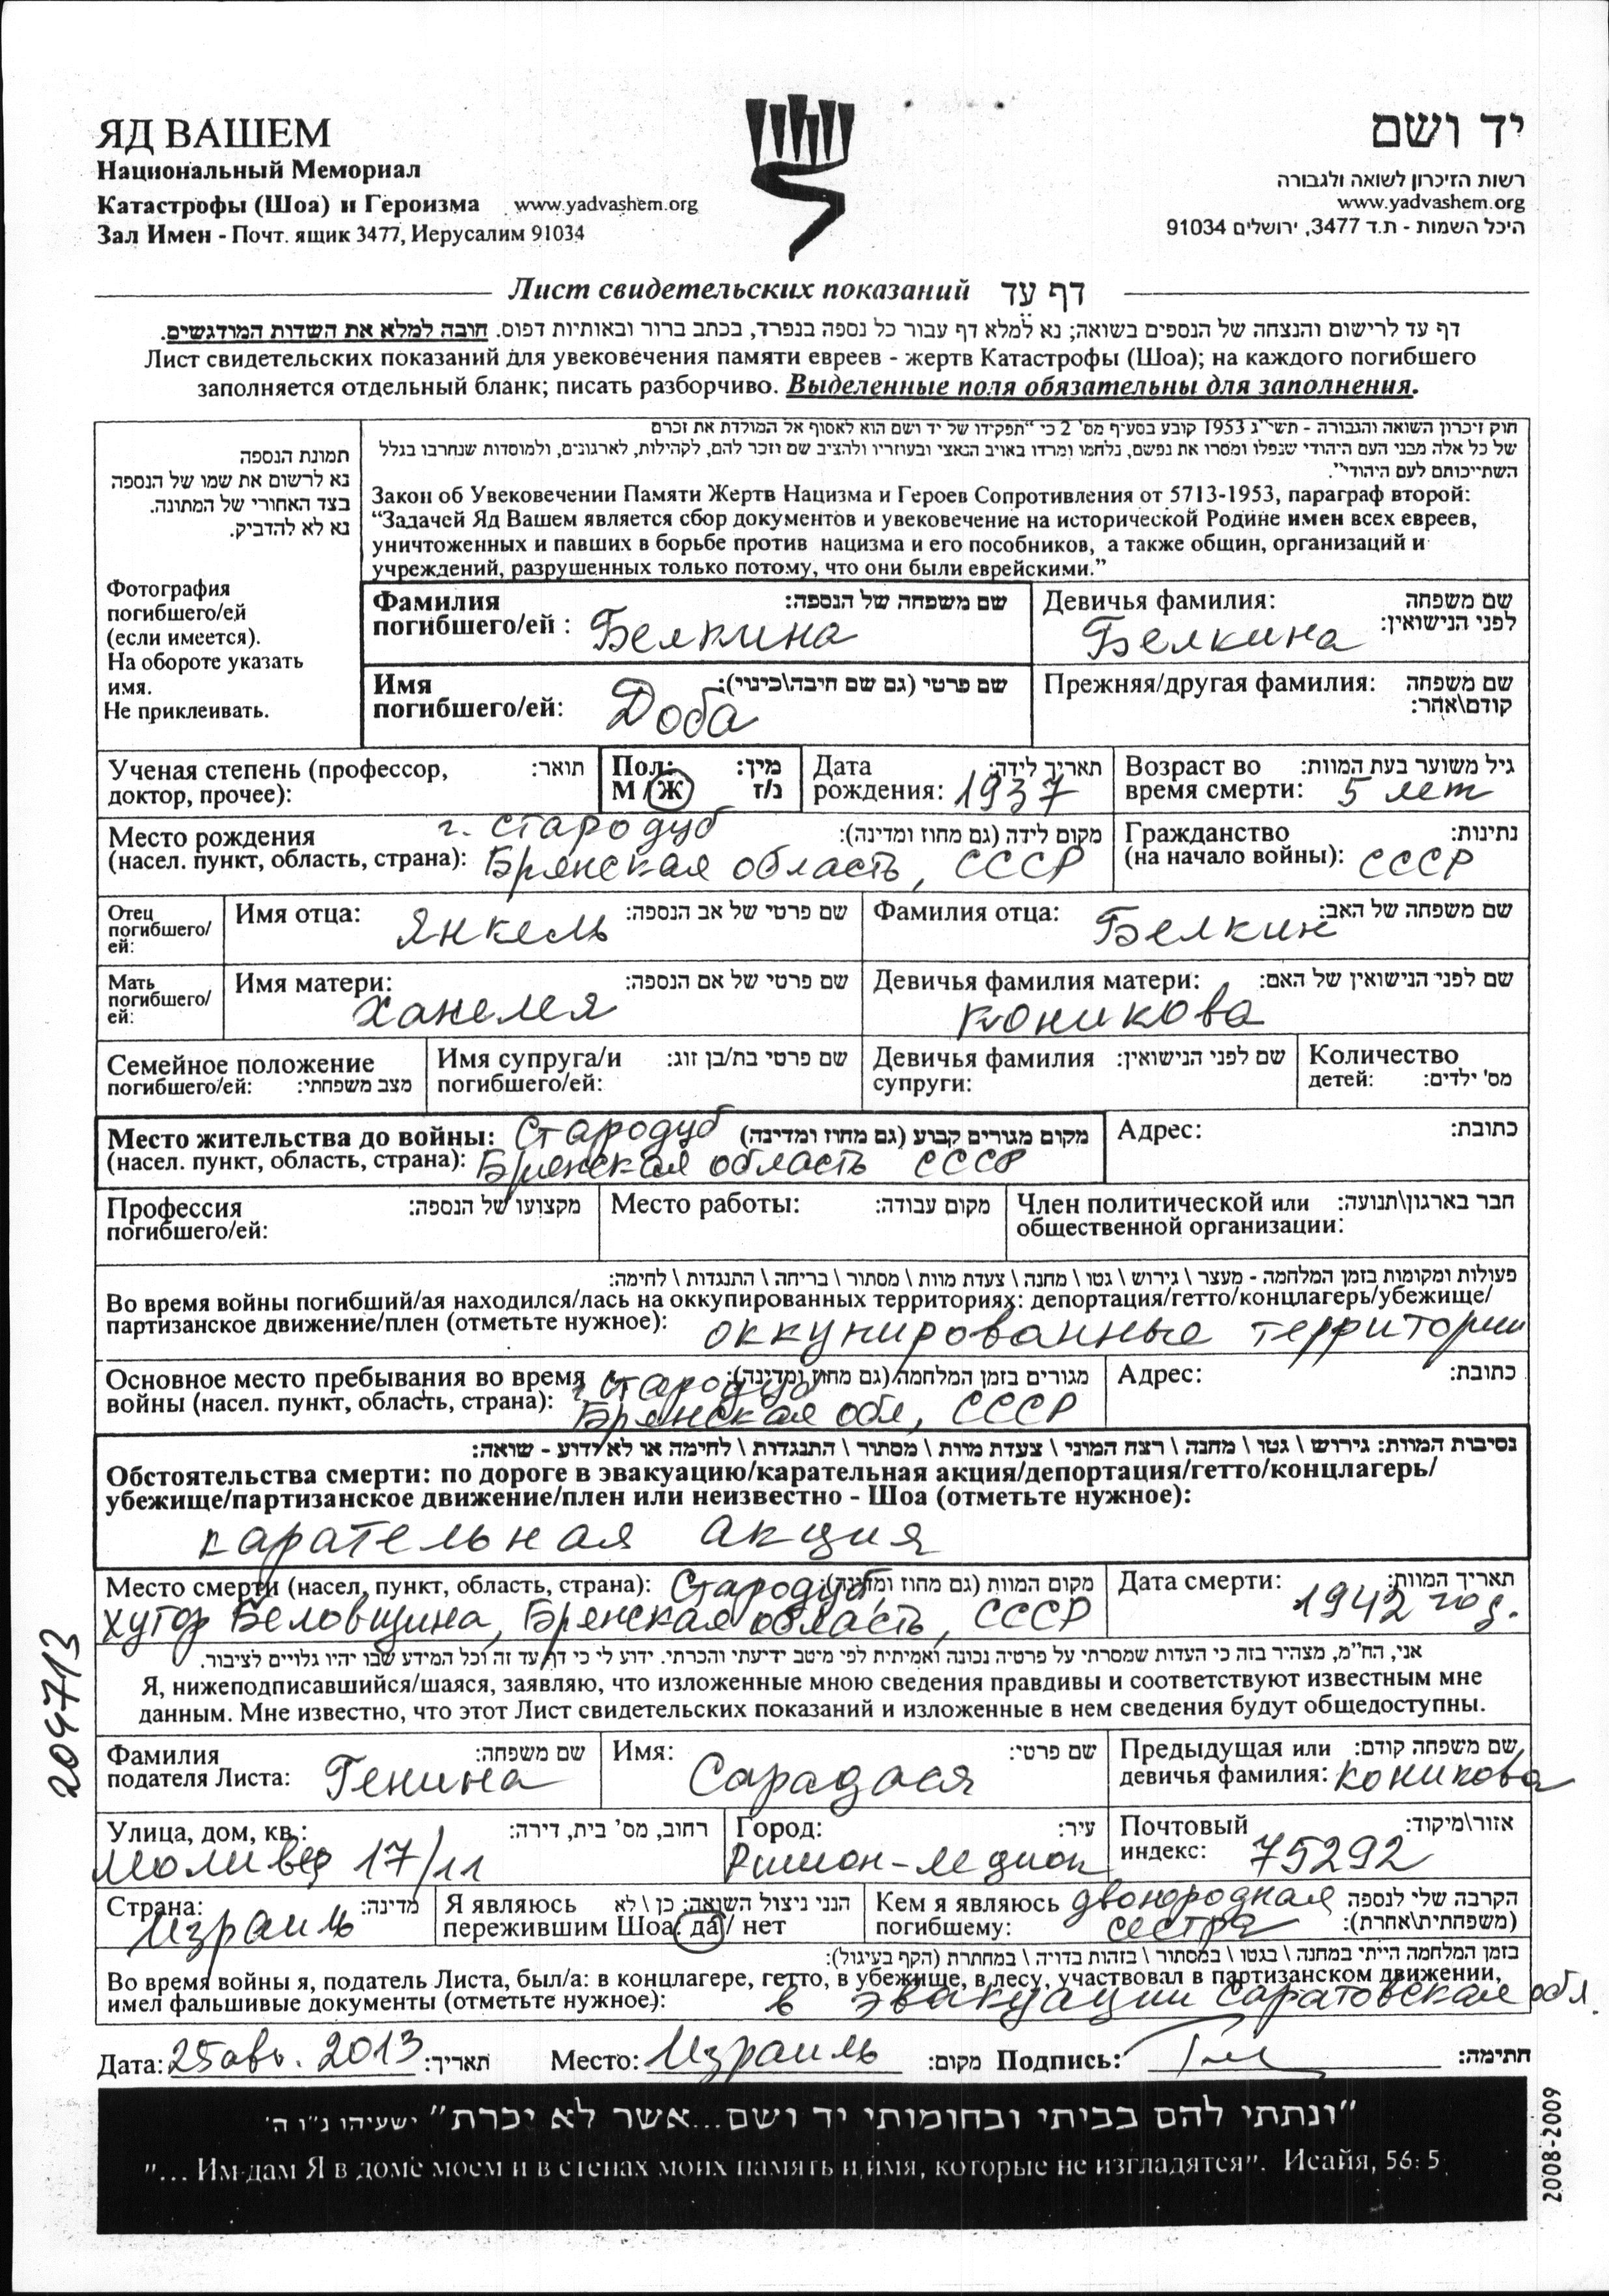 ЯД ВАШЕМ
Национальный Мемориал
Катастрофы (Шоа) и Героизма www.yadvashem.org
Зал Имен - Почт. ящик 3477, Иерусалим 91034
יד ושם
רשות הזיכרון לשואה ולגבורה
www.yadvashem.org
היכל השמות - ת.ד 3477, ירושלים 91034
Лист свидетельских показаний דף עד
דף עד לרישום והנצחה של הנספים בשואה; נא למלא דף עבור כל נספה בנפרד, בכתב ברור ובאותיות דפוס. חובה למלא את השדות המודגשים.
Лист свидетельских показаний для увековечения памяти евреев - жертв Катастрофы (Шоа); на каждого погибшего
заполняется отдельный бланк; писать разборчиво. Выделенные поля обязательны для заполнения.
תמונת הנספה
נא לרשום את שמו של הנספה
בצד האחורי של המתונה.
נא לא להדביק.
Фотография
погибшего/ей
(если имеется).
На обороте указать
имя.
Не приклеивать.
חוק זיכרון השואה והגבורה - תשי"ג 1953 קובע בסעיף מס' 2 כי "תפקידו של יד ושם הוא לאסוף אל המולדת את זכרם
של כל אלה מבני העם היהודי שנפלו ומסרו את נפשם, נלחמו ומרדו באויב הנאצי ובעוזריו ולהציב שם וזכר להם, לקהילות, לארגונים, ולמוסדות שנחרבו בגלל
השתייכותם לעם היהודי".
Закон об Увековечении Памяти Жертв Нацизма и Героев Сопротивления от 5713-1953, параграф второй:
“Задачей Яд Вашем является сбор документов и увековечение на исторической Родине имен всех евреев,
уничтоженных и павших в борьбе против нацизма и его пособников, а также общин, организаций и
учреждений, разрушенных только потому, что они были еврейскими.”
Фамилия שם משפחה של הנספה:
погибшего/ей : Белкина
Девичья фамилия: שם משפחה
לפני הנישואין: Белкина
Имя שם פרטי (גם שם חיבה\כינוי):
погибшего/ей: Доба
Прежняя/другая фамилия: שם משפחה
קודם\אחר:
Ученая степень (профессор, תואר:
доктор, прочее):
Пол: מין:
М / Ж ז/נ
Дата תאריך לידה:
рождения: 1937
Возраст во גיל משוער בעת המוות:
время смерти: 5 лет
Место рождения г. Стародуб מקום לידה (גם מחוז ומדינה):
(насел. пункт, область, страна): Брянская область, СССР
Гражданство נתינות:
(на начало войны): СССР
Отец
погибшего/
ей:
Имя отца: Янкель שם פרטי של אב הנספה:
Фамилия отца: Белкин שם משפחה של האב:
Мать
погибшего/
ей:
Имя матери: שם פרטי של אם הנספה:
Ханелея
Девичья фамилия матери: שם לפני הנישואין של האם:
Коникова
Семейное положение
погибшего/ей: מצב משפחתי:
Имя супруга/и שם פרטי בת/בן זוג:
погибшего/ей:
Девичья фамилия שם לפני הנישואין:
супруги:
Количество
детей: מס' ילדים:
Место жительства до войны: Стародуб מקום מגורים קבוע (גם מחוז ומדינה)
(насел. пункт, область, страна): Брянская область СССР
Адрес: כתובת:
Профессия מקצועו של הנספה:
погибшего/ей:
Место работы: מקום עבודה:
Член политической или חבר בארגון\תנועה:
общественной организации:
פעולות ומקומות בזמן המלחמה - מעצר \ גירוש \ גטו \ מחנה \ צעדת מוות \ מסתור \ בריחה \ התנגדות \ לחימה:
Во время войны погибший/ая находился/лась на оккупированных территориях: депортация/гетто/концлагерь/убежище/
партизанское движение/плен (отметьте нужное): оккупированные территории
Основное место пребывания во время г. Стародуб מגורים בזמן המלחמה (גם מחוז ומדינה):
войны (насел. пункт, область, страна): Брянская обл, СССР
Адрес: כתובת:
נסיבות המוות: גירוש \ גטו \ מחנה \ רצח המוני \ צעדת מוות \ מסתור \ התנגדות \ לחימה או לא ידוע - שואה:
Обстоятельства смерти: по дороге в эвакуацию/карательная акция/депортация/гетто/концлагерь/
убежище/партизанское движение/плен или неизвестно - Шоа (отметьте нужное):
карательная акция
Место смерти (насел, пункт, область, страна): Стародуб, מקום המוות (גם מחוז ומדינה):
хутор Беловщина, Брянская область, СССР
Дата смерти: תאריך המוות:
1942 год.
אני, הח"מ, מצהיר בזה כי העדות שמסרתי על פרטיה נכונה ואמיתית לפי מיטב ידיעתי והכרתי. ידוע לי כי דף עד זה וכל המידע שבו יהיו גלויים לציבור.
Я, нижеподписавшийся/шаяся, заявляю, что изложенные мною сведения правдивы и соответствуют известным мне
данным. Мне известно, что этот Лист свидетельских показаний и изложенные в нем сведения будут общедоступны.
Фамилия שם משפחה:
подателя Листа: Генина
Имя: שם פרטי:
Сарадася
Предыдущая или שם משפחה קודם:
девичья фамилия: Коникова
Улица, дом, кв.: רחוב, מס' בית, דירה:
Моливер 17/11
Город: עיר:
Ришон-ле Цион
Почтовый אזור\מיקוד:
индекс: 75292
Страна: מדינה:
Израиль
Я являюсь הנני ניצול השואה: כן \ לא
пережившим Шоа: да / нет
Кем я являюсь двоюродная הקרבה שלי לנספה
погибшему: сестра (משפחתית\אחרת):
בזמן המלחמה הייתי במחנה \ בגטו \ במסתור \ בזהות בדויה \ במחתרת (הקף בעיגול):
Во время войны я, податель Листа, был/а: в концлагере, гетто, в убежище, в лесу, участвовал в партизанском движении,
имел фальшивые документы (отметьте нужное): в эвакуации Саратовская обл.
Дата: 25 авг. 2013 תאריך: Место: Израиль מקום: Подпись: חתימה:
"ונתתי להם בביתי ובחומותי יד ושם...אשר לא יכרת" ישעיהו נ"ו ה'
"... Им дам Я в доме моем и в стенах моих память и имя, которые не изгладятся". Исайя, 56: 5
209713
2008-2009